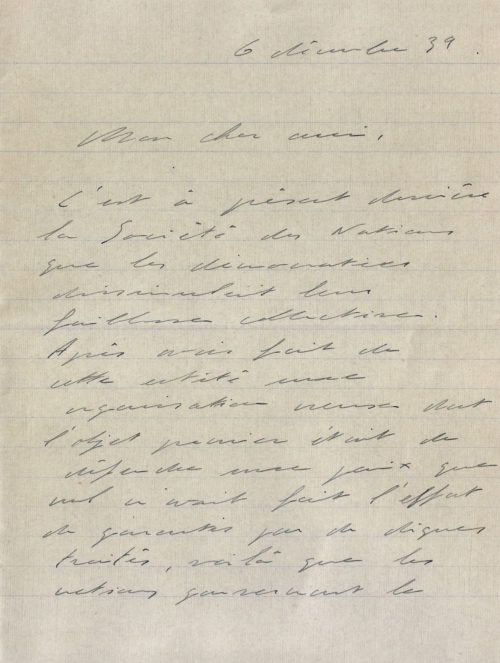 6 décembre 39.
Mon cher ami,
C'est à présent derrière
la Société des Nations
que les démocraties
dissimulent leur
faillite collective.
Après avoir fait de
cette entité une
organisation dont
l'objet premier était de
défendre une paix que
nul n'avait fait l'effort
de garantir par de dignes
traités, voilà que les
nations gouvernant le